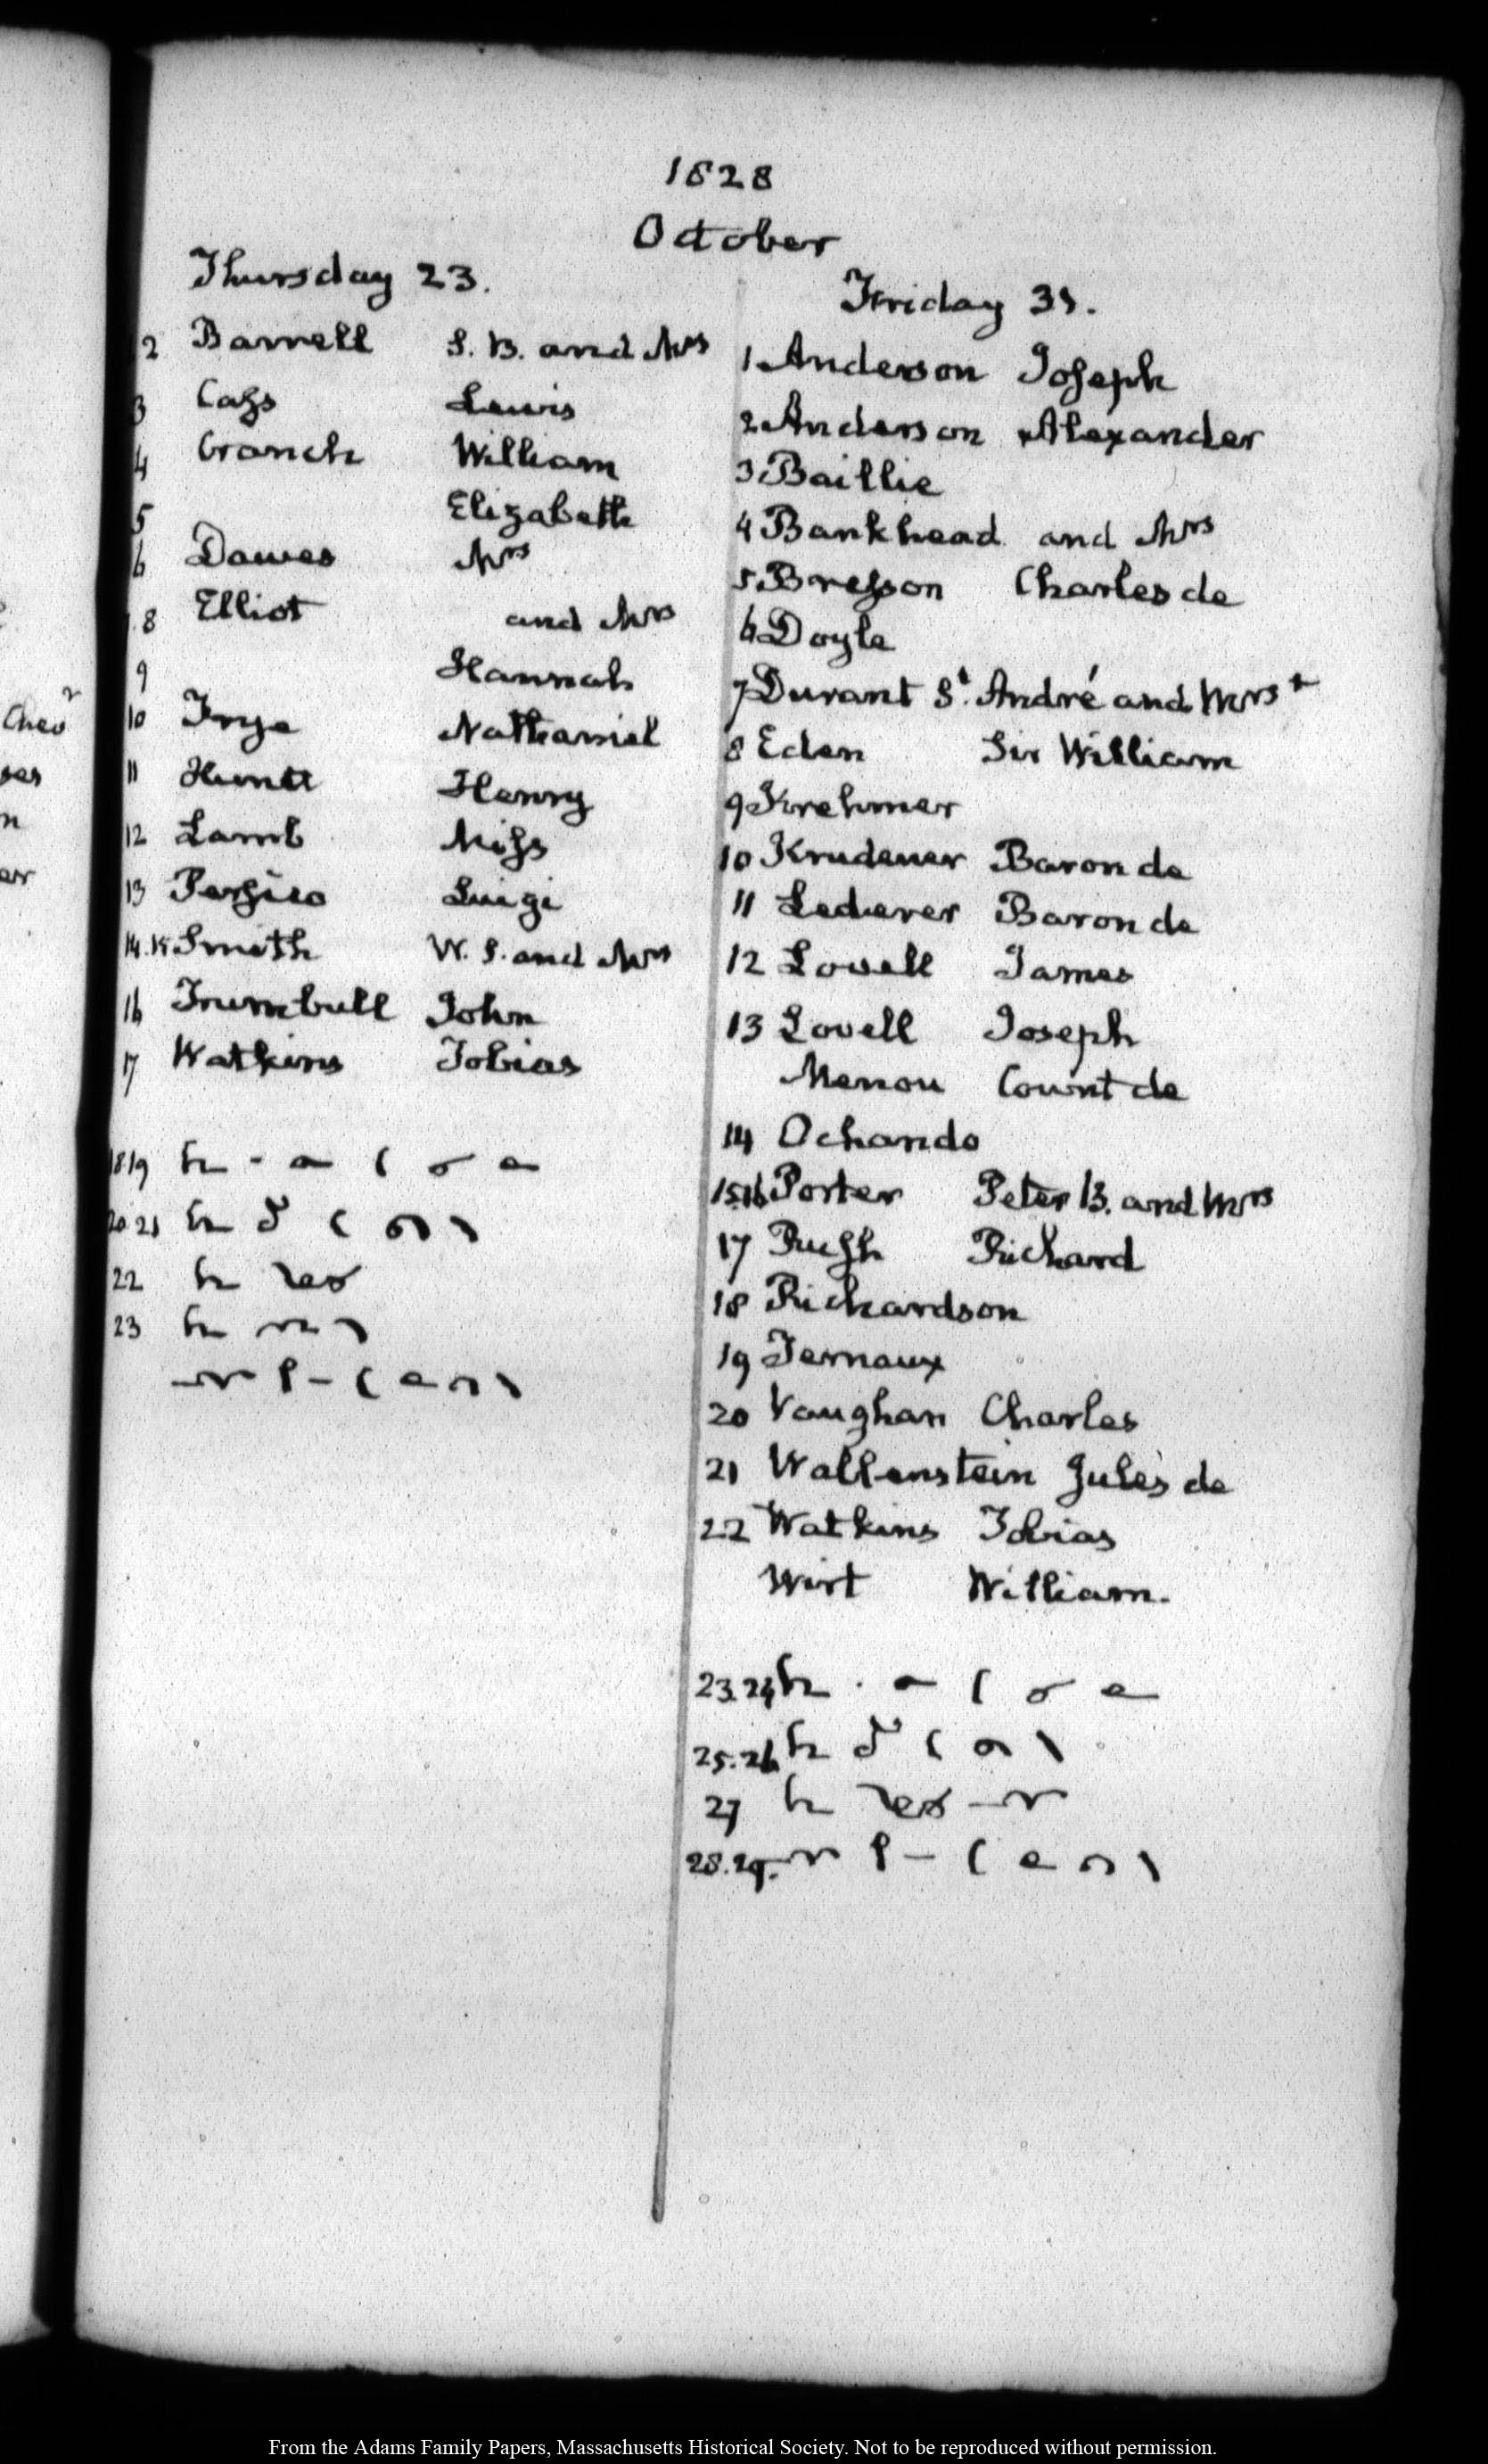 1828
October
Thursday 23.
2 Barrell S. B. and Mrs
3 Cass Lewis
4 Cranch William
5 Elizabeth
6 Dawes Mrs
8 Elliot and Mrs
9 Hannah
10 Frye Nathaniel
11 Huntt Henry
12 Lamb Miss
13 Persico Luigi
14.15 Smith W. S. and Mrs
16 Trumbull John
17 Watkins Tobias
18 19
20 21
22
23
Friday 31.
1. Anderson Joseph
2. Anderson Alexander
3 Baillie
4 Bankhead and Mrs
5. Bresson Charles de
6 Doyle
7 Durant St. André and Mrs +
8 Eden Sir William
9 Krehmer
10 Krudener Baron de
11 Lederer Baron de
12 Lovell James
13 Lovell Joseph
Menou Count de
14 Ochando
15.16 Porter Peter B. and Mrs
17 Rush Richard
18 Richardson
19 Ternaux
20 Vaughan Charles
21 Wallenstein Jules de
22 Watkins Tobias
Wirt William.
23.24
25.26
27
28.29.
From the Adams Family Papers, Massachusetts Historical Society. Not to be reproduced without permission.